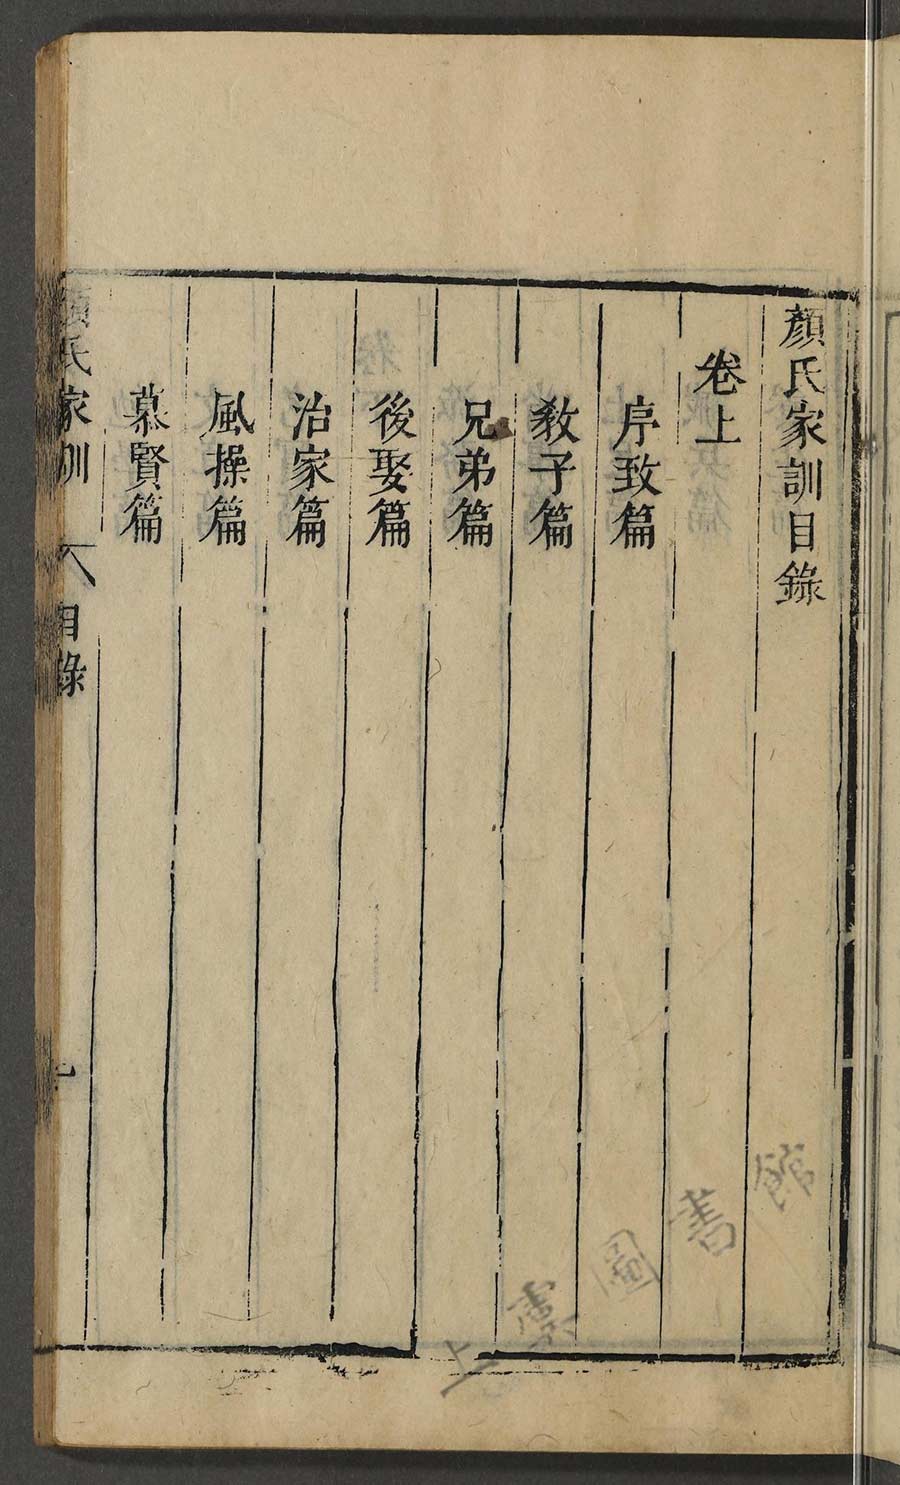 顏氏家訓目錄
卷上
序致篇
教子篇
兄弟篇
後娶篇
治家篇
風操篇
慕賢篇
顏氏家訓 目錄
圖書館